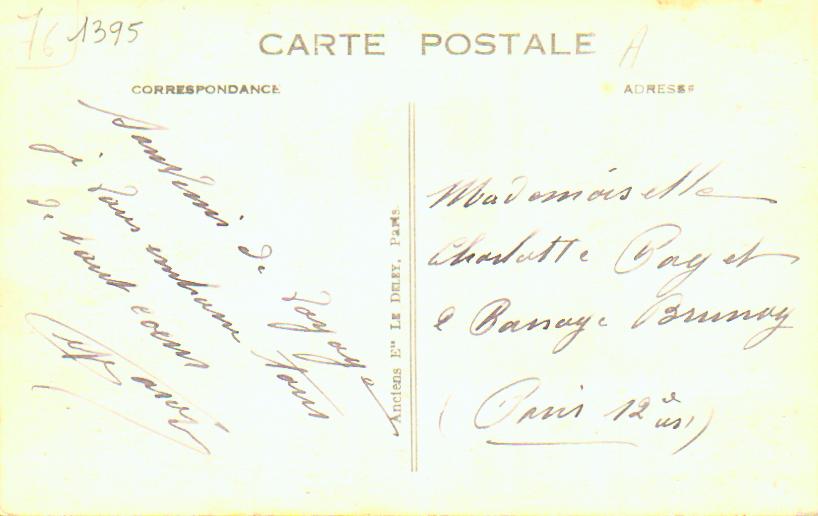 76 1395
CARTE POSTALE
A
CORRESPONDANCE
ADRESSE
Souvenir de Voyage
je vous embrasse tous
de tout cœur
Anciens Etˢ LE DELEY, Paris.
Mademoiselle
Charlotte Paget
Passage Brunoy
(Paris 12e arr)